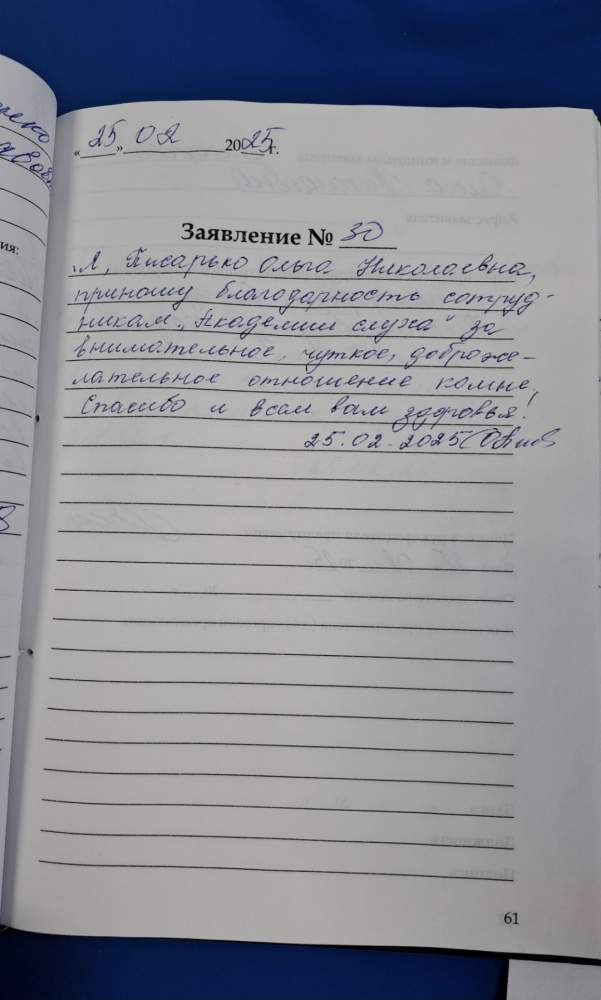 «25» 02 2025 г.
Заявление № 30
Я, Писарько Ольга Николаевна,
приношу благодарность сотруд-
никам „Академии слуха" за
внимательное, чуткое, доброже-
лательное отношение комне,
Спасибо и всем вам здоровья!
25.02.2025
ия:
61